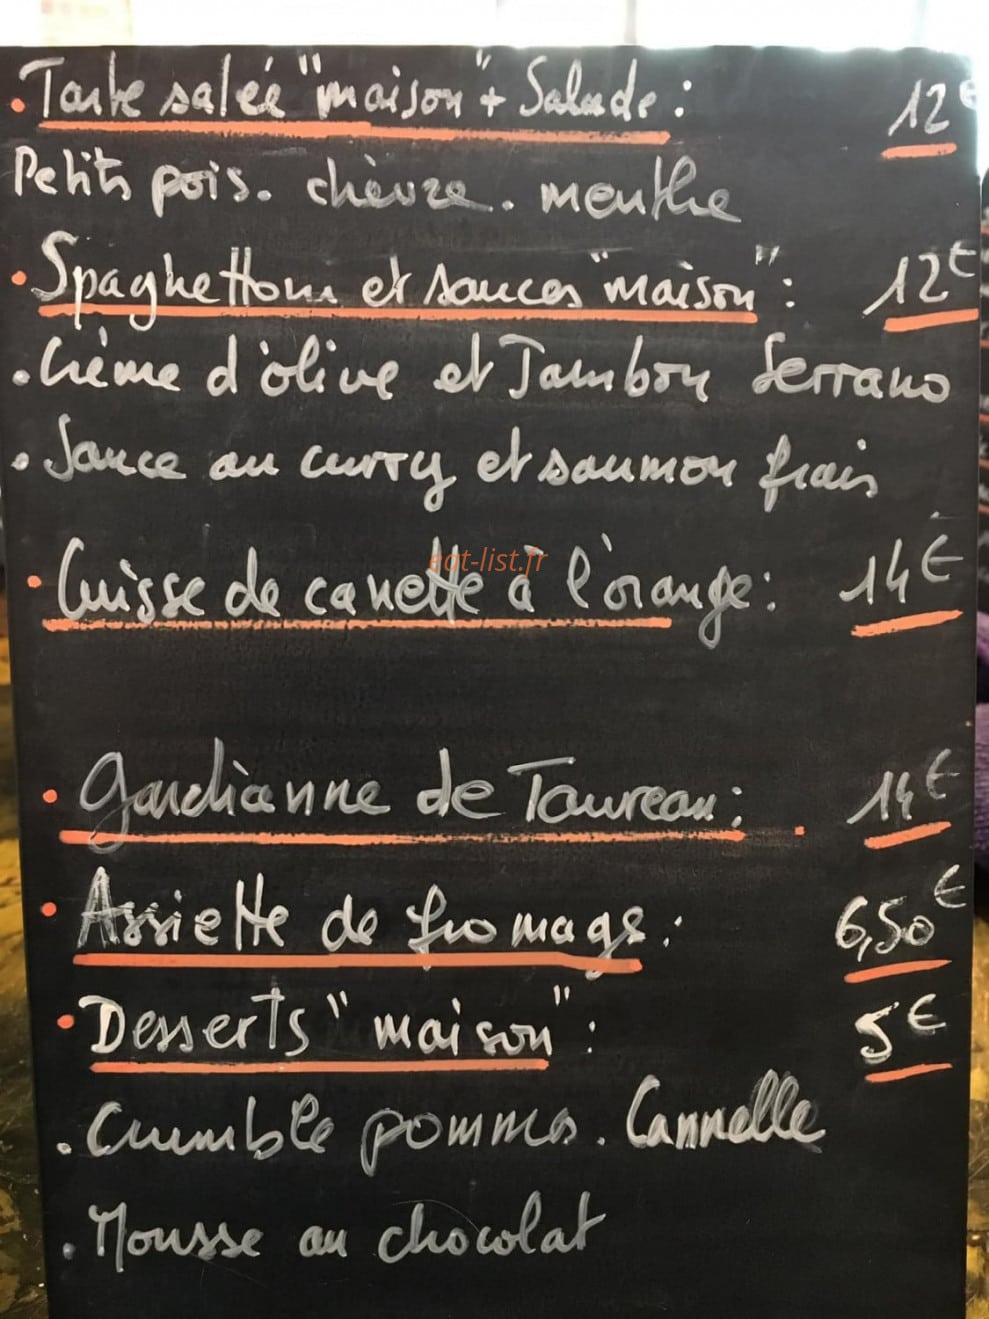 . Tarte salée "maison" + Salade : 12€
Petits pois. chèvre. menthe
. Spaghettoni et sauces "maison" : 12€
. Crème d'olive et Jambon Serrano
. Sauce au curry et saumon frais
eat-list.fr
. Cuisse de canette à l'orange : 14€
. Gardianne de Taureau : 14€
. Assiette de fromage : 6,50€
. Desserts "maison" : 5€
. Crumble pommes. Cannelle
. Mousse au chocolat